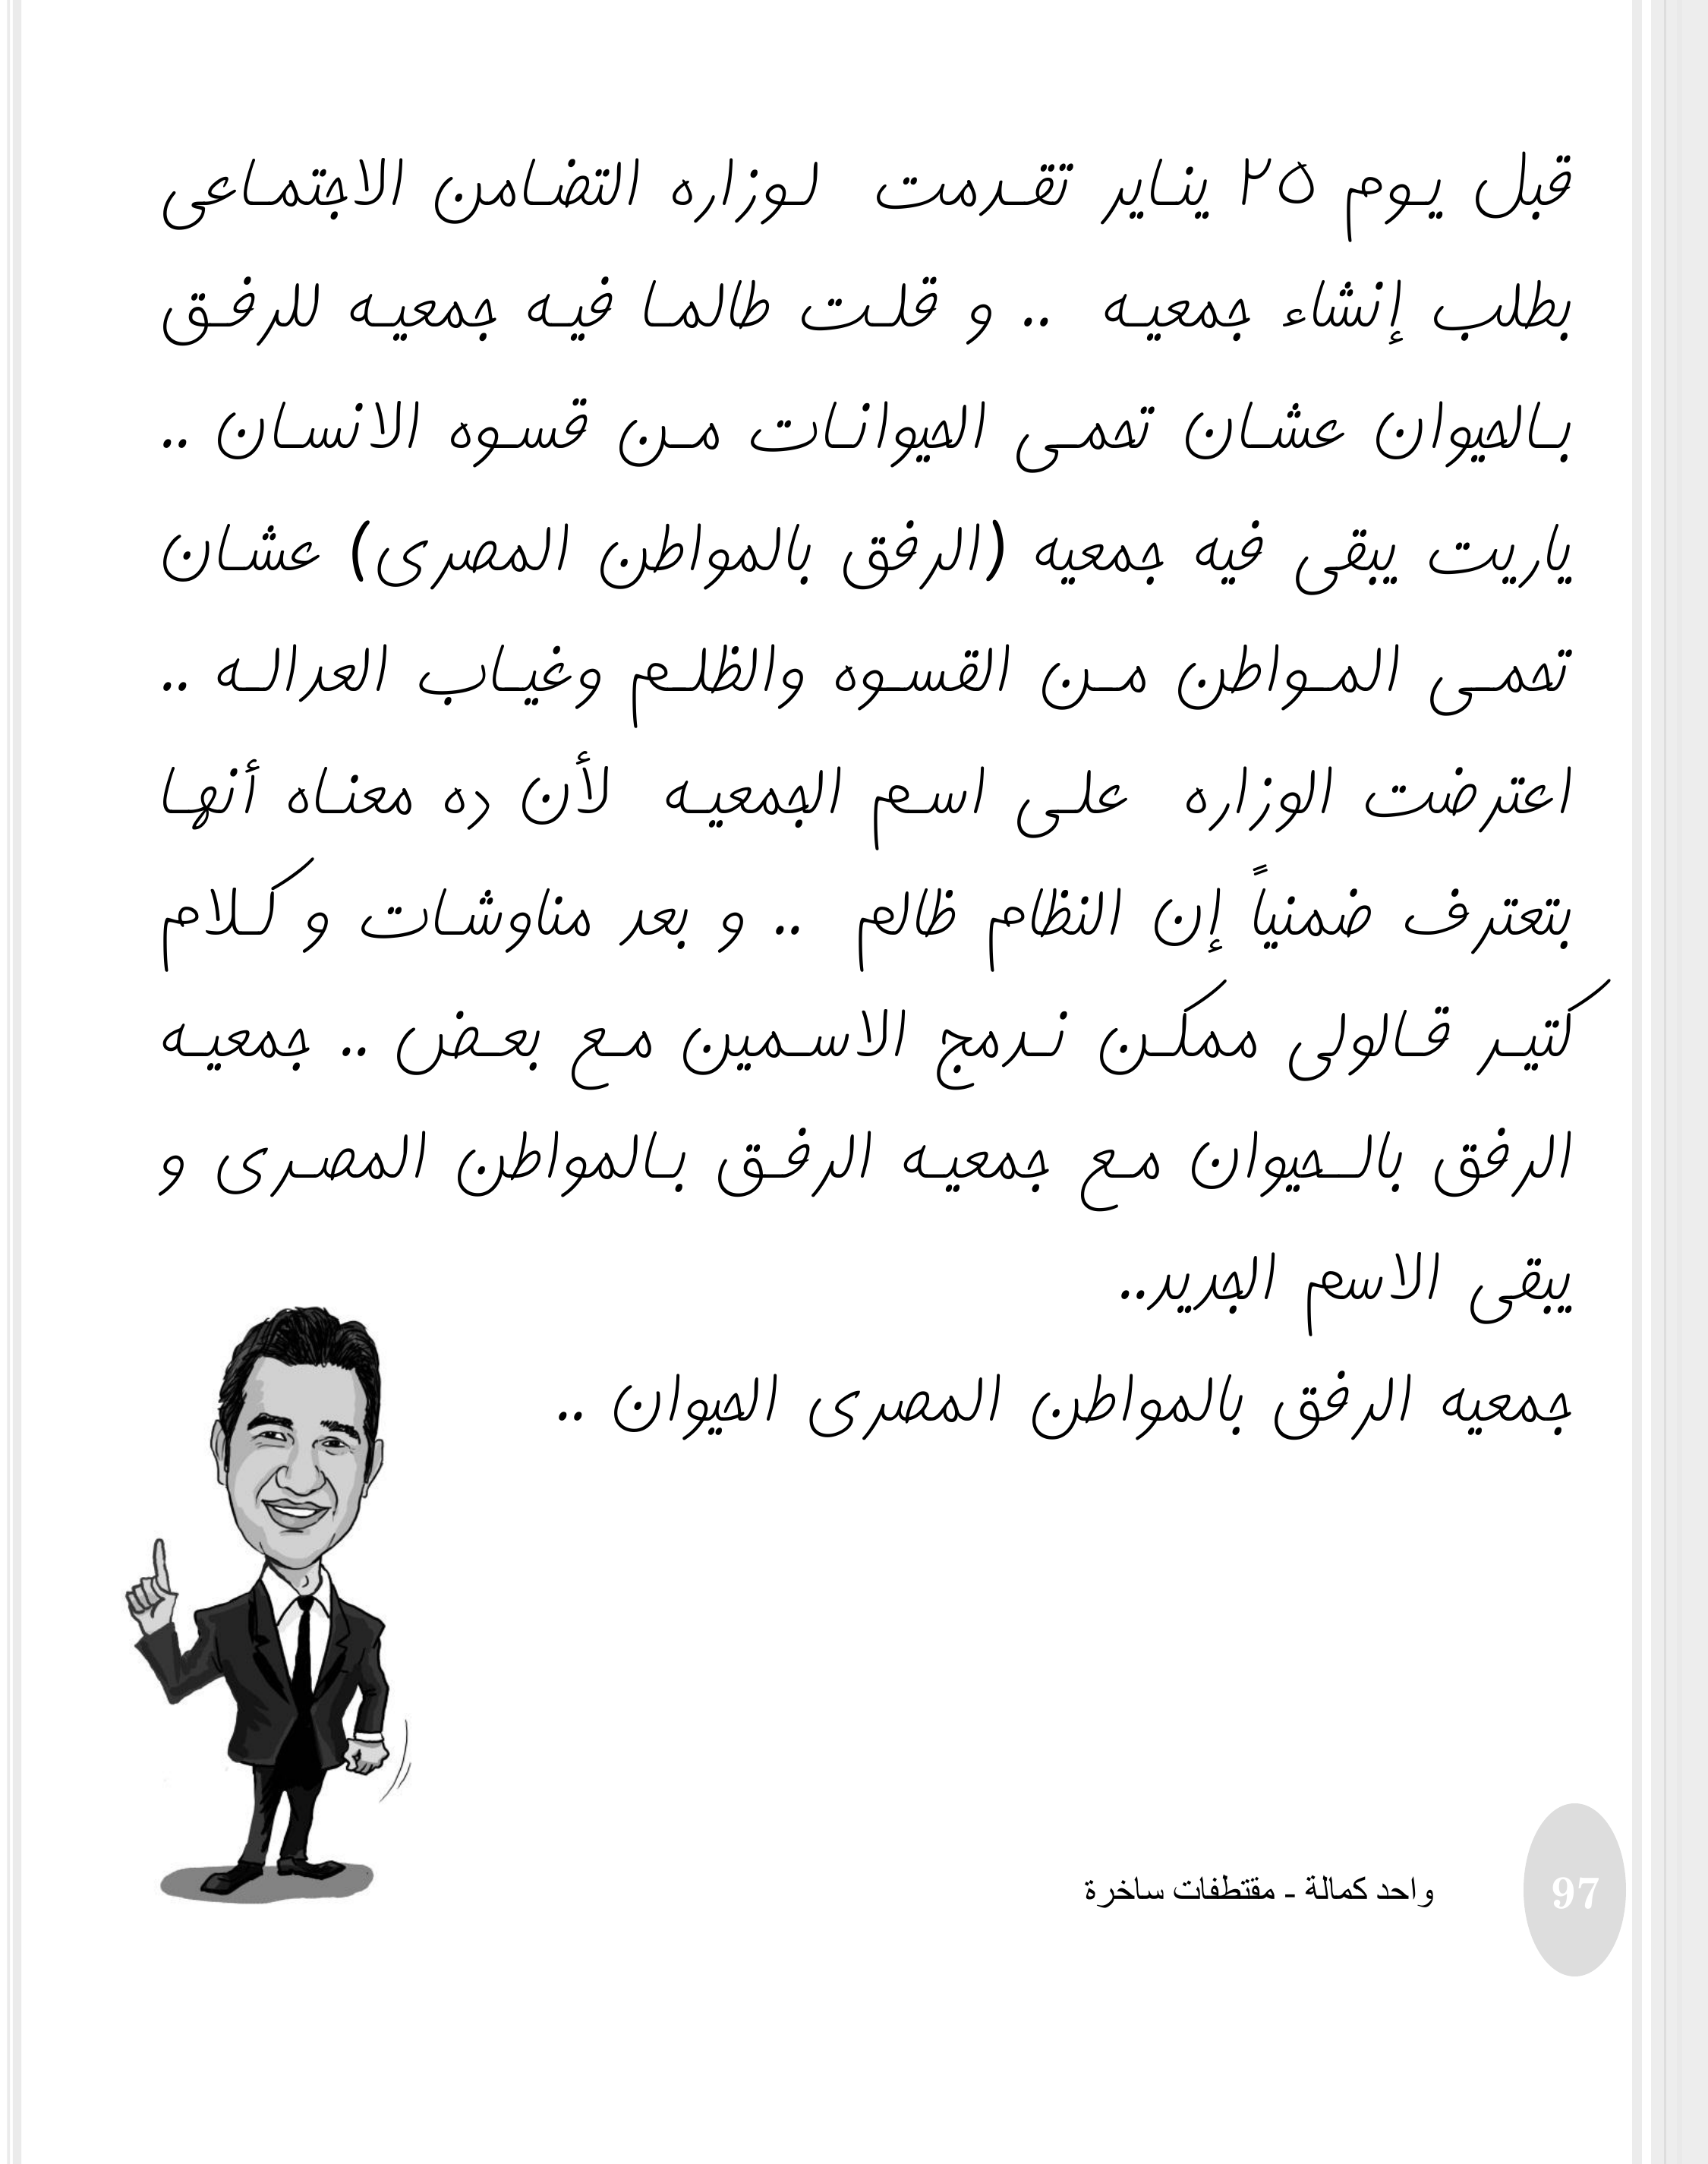 قبل يوم ٢٥ يناير تقدمت لوزاره التضامن الاجتماعى
بطلب إنشاء جمعيه .. و قلت طالما فيه جمعيه للرفق
بالحيوان عشان تحمى الحيوانات من قسوه الانسان ..
ياريت يبقى فيه جمعيه (الرفق بالمواطن المصرى) عشان
تحمى المواطن من القسوه والظلم وغياب العداله ..
اعترضت الوزاره على اسم الجمعيه لأن ده معناه أنها
بتعترف ضمنياً إن النظام ظالم .. و بعد مناوشات و كلام
كتير قالولى ممكن ندمج الاسمين مع بعض .. جمعيه
الرفق بالحيوان مع جمعيه الرفق بالمواطن المصرى و
يبقى الاسم الجديد..
جمعيه الرفق بالمواطن المصرى الحيوان ..
واحد كمالة - مقتطفات ساخرة
97